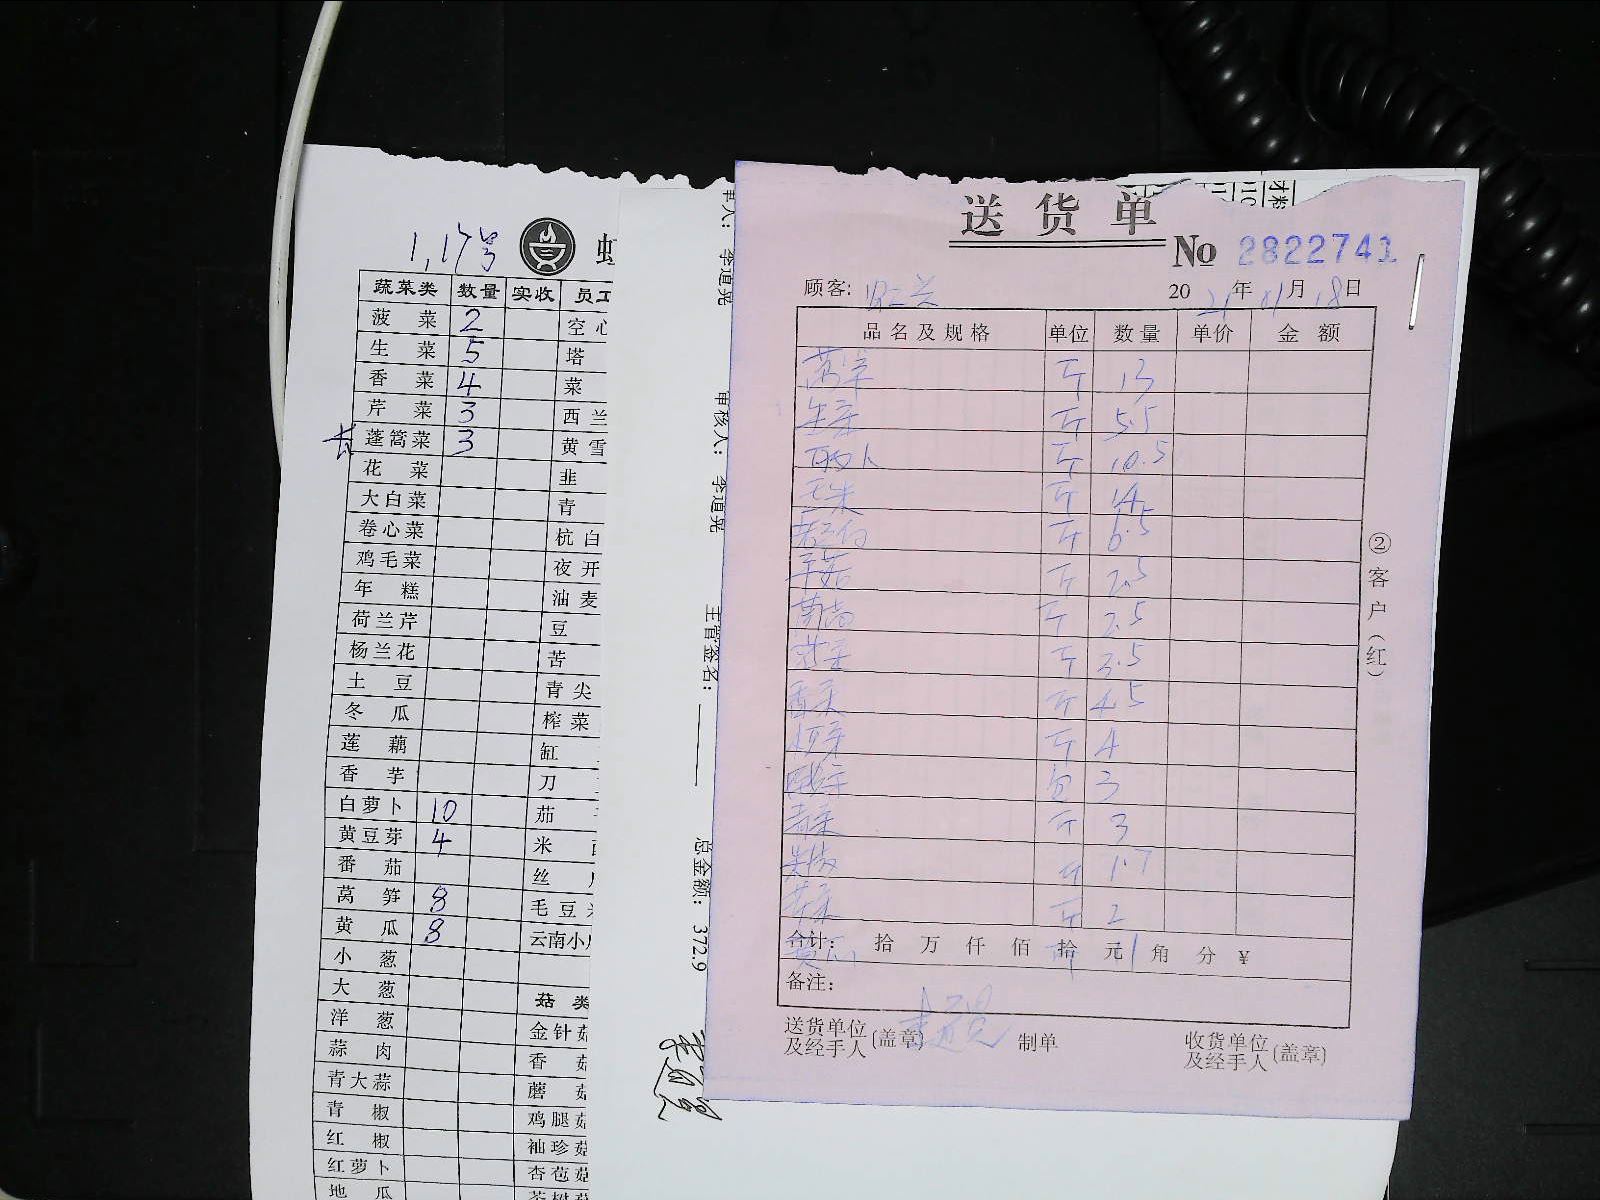 1,17号
虹
蔬菜类 数量 实收 员工
菠菜 2 空心
生菜 5 塔
香菜 4 菜
芹菜 3 西兰
蓬蒿菜 3 黄雪
花菜 韭
大白菜 青
卷心菜 杭白
鸡毛菜 夜开
年糕 油麦
荷兰芹 豆
杨兰花 苦
土豆 青尖
冬瓜 榨菜
莲藕 缸
香芋 刀
白萝卜 10 茄
黄豆芽 4 米
番茄 丝
莴笋 8 毛豆
黄瓜 8 云南小
小葱
大葱 菇类
洋葱 金针菇
蒜肉 香菇
青大蒜 蘑菇
青椒 鸡腿菇
红椒 袖珍菇
红萝卜 杏苞菇
地瓜 茶树菇
单人: 李道晃
审核人: 李道晃
主管签名:
总金额: 372.9
送货单
No 2822741
顾客: 2021年01月18日
品名及规格 单位 数量 单价 金额
莴笋 斤 13
生菜 斤 5.5
斤 10.5
毛菜 斤 14
斤 6.5
斤 2.5
斤 2.5
菠菜 斤 3.5
香菜 斤 4.5
斤 4
包 3
青菜 斤 3
尖椒 斤 1.7
芹菜 斤 2
合计: 拾 万 仟 佰 拾 元 角 分 ¥
黄瓜
备注:
送货单位及经手人(盖章) 制单 收货单位及经手人(盖章)
②客户(红)